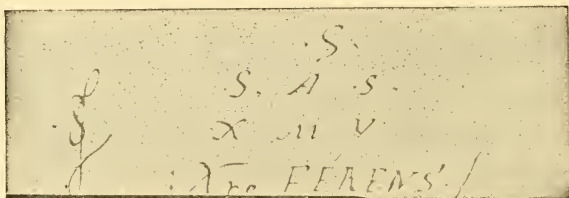 .S.
.S. A .S.
X M Y
: Xpo FERENS /